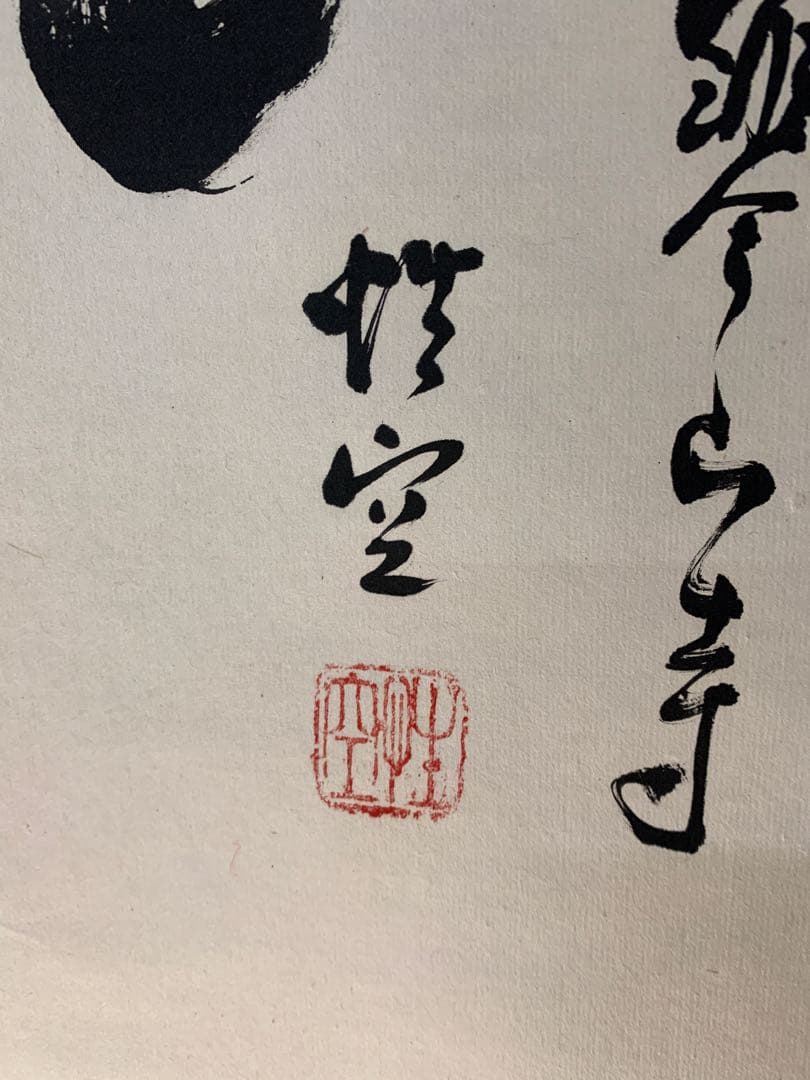 今山寺
性空
性空